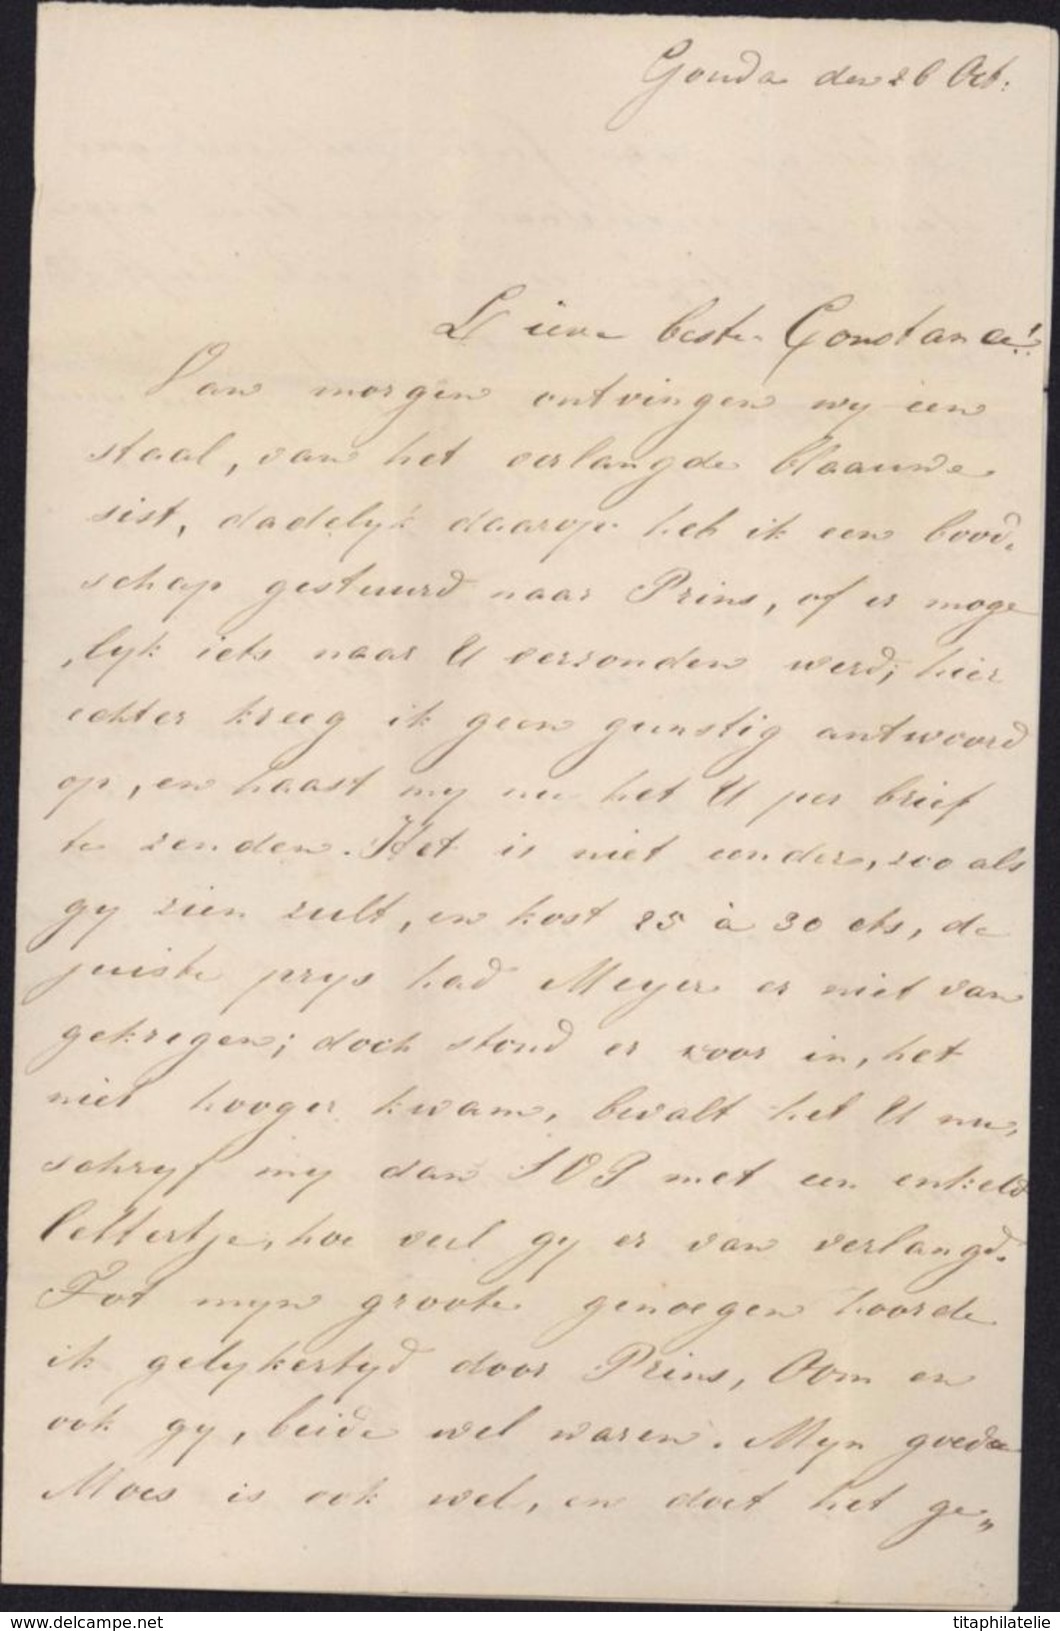 Gouda den 26 Oct:
Lieve beste Constance!
Van morgen ontvingen wy een
staal, van het verlangde blaauwe
sist, dadelyk daarop heb ik een bood„
schap gestuurd naar Prins, of er moge
„lyk iets naar U verzonden werd; hier
echter kreeg ik geen gunstig antwoord
op, en haast my nu het U per brief
te zenden. Het is niet eender, zoo als
gy zien zult, en kost 25 à 30 cts, de
juiste prys had Meyer er niet van
gekregen; doch stond er voor in, het
niet hooger kwam, bevalt het U nu,
schryf my dan SVP met een enkeld
lettertje, hoe veel gy er van verlangd.
Tot myn groote genoegen hoorde
ik gelykertyd door Prins, Oom en
ook gy, beide wel waren. Myn goede
Moes is ook wel, en doet het ge„
www.delcampe.net
titaphilatelie